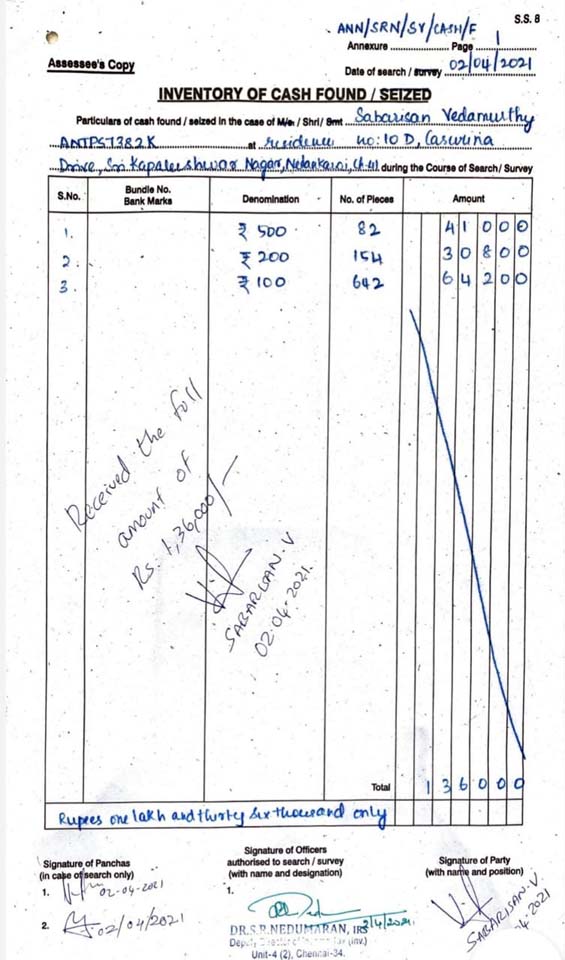 S.S. 8
ANN/SRN/SV/CASH/F
1
Annexure ............ Page ............
Assessee's Copy
Date of search / survey 02/04/2021
INVENTORY OF CASH FOUND / SEIZED
Particulars of cash found / seized in the case of M/s / Shri / Smt Sabarisan Vedamurthy
ANTPS7382K at residence no: 10 D, Casurina
Drive, Sri Kapaleeshwar Nagar, Neelankarai, Ch-41 during the Course of Search / Survey
S.No. Bundle No. Bank Marks Denomination No. of Pieces Amount
1. ₹ 500 82 41000
2. ₹ 200 154 30800
3. ₹ 100 642 64200
Received the full
amount of
Rs. 1,36,000/-
SABARISAN.V
02.04.2021.
Total 136000
Rupees one lakh and thirty six thousand only
Signature of Panchas
(in case of search only)
1. 02-04-2021
2. 02/04/2021
Signature of Officers
authorised to search / survey
(with name and designation)
1.
2/4/2021
DR.S.R.NEDUMARAN, IRS
Deputy Director of Income Tax (Inv.)
Unit-4 (2), Chennai-34.
Signature of Party
(with name and position)
SABARISAN.V